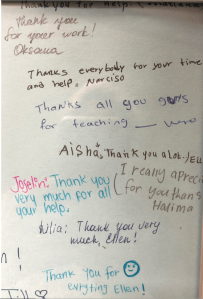 Thank you for help,
Thank you
for your work!
Oksana
Thanks everybody for your time
and help. Narciso
Thanks all you guys
for teaching
Aisha, Thank you a lot
I really
for you
Halima
Joselin: Thank you
very much for all
your help.
Thank you very
much, Ellen!
Thank You for
evryting Ellen!